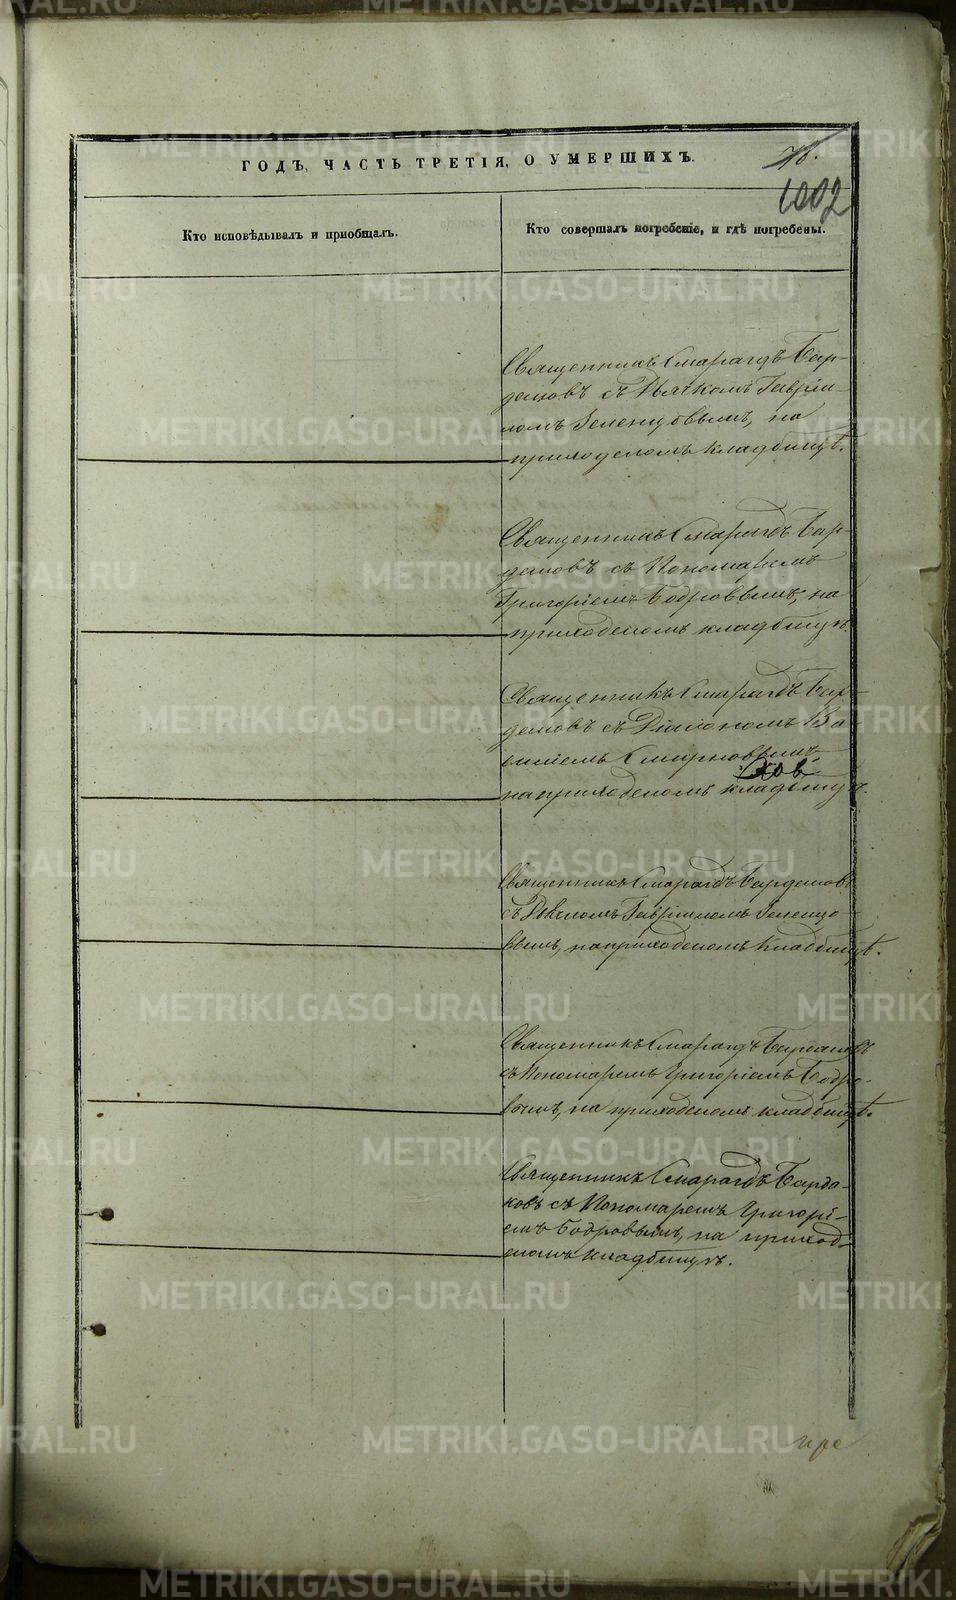 ГОДЪ, ЧАСТЬ ТРЕТІЯ, О УМЕРШИХЪ.
1002
Кто исповѣдывалъ и пріобщалъ.
Кто совершалъ погребеніе, и гдѣ погребены.
Священникъ Смарагдъ Бар-
даковъ съ Дьячкомъ Гавріи-
ломъ Зеленцовымъ, на
приходскомъ кладбищѣ.
Священникъ Смарагдъ Бар-
даковъ съ Пономаремъ
Григоріемъ Бодровымъ, на
приходскомъ кладбищѣ.
Священникъ Смарагдъ Бар-
даковъ съ Діакономъ Ва
силіемъ Смирновымъ,
на приходскомъ кладбищѣ.
Священникъ Смарагдъ Бардаковъ
съ Дьячкомъ Гавріиломъ Зеленцо-
вымъ, на приходскомъ кладбищѣ.
Священникъ Смарагдъ Бардаковъ
съ Пономаремъ Григоріемъ Бодро-
вымъ, на приходскомъ кладбищѣ.
Священникъ Смарагдъ Барда-
ковъ съ Пономаремъ Григорі-
емъ Бодровымъ, на приход-
скомъ кладбищѣ.
METRIKI.GASO-URAL.RU